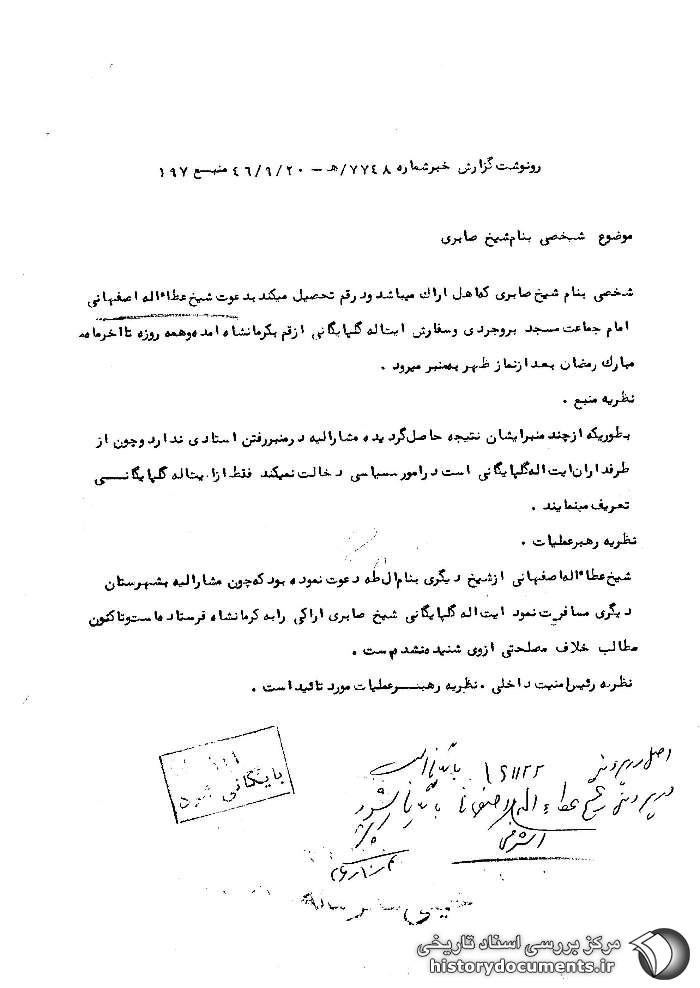 رونوشت گزارش خبر شماره ۷۷۴۸/هـ – ۴۶/۹/۲۰ منبـع ۱۹۷
موضوع شخصی بنام شیخ صابری
شخصی بنام شیخ صابری که اهل اراک میباشد و در قم تحصیل میکند بدعوت شیخ عطاءاله اصفهانی
امام جماعت مسجد بروجردی و سفارش ایت اله گلپایگانی از قم بکرمانشاه امده و همه روزه تا اخر ماه
مبارک رمضان بعد از نماز ظهر به منبر میرود .
نظریه منبع .
بطوریکه از چند منبر ایشان نتیجه حاصل گردیده مشارالیه در منبر رفتن استادی ندارد و چون از
طرفداران ایت اله گلپایگانی است در امور سیاسی دخالت نمیکند فقط از ایت اله گلپایگانــی
تعریف مینمایند .
نظریه رهبر عملیات .
شیخ عطاءاله اصفهانی از شیخ دیگری بنام ال طه دعوت نموده بود که چون مشارالیه بشهرستان
دیگری مسافرت نمود ایت اله گلپایگانی شیخ صابری اراکی را به کرمانشاه فرستاده است و تاکنون
مطالب خلاف مصلحتی از وی شنیده نشده است .
نظریه رئیس امنیت داخلی . نظریه رهبـر عملیات مورد تائید است .
بایگانی شود
اصل در پرونده ۱۶۱۱۲۲ بایگانی است
در پرونده شیخ عطاءاله اصفهانی بایگانی شود
اشرفی
مرکز بررسی اسناد تاریخی
historydocuments.ir